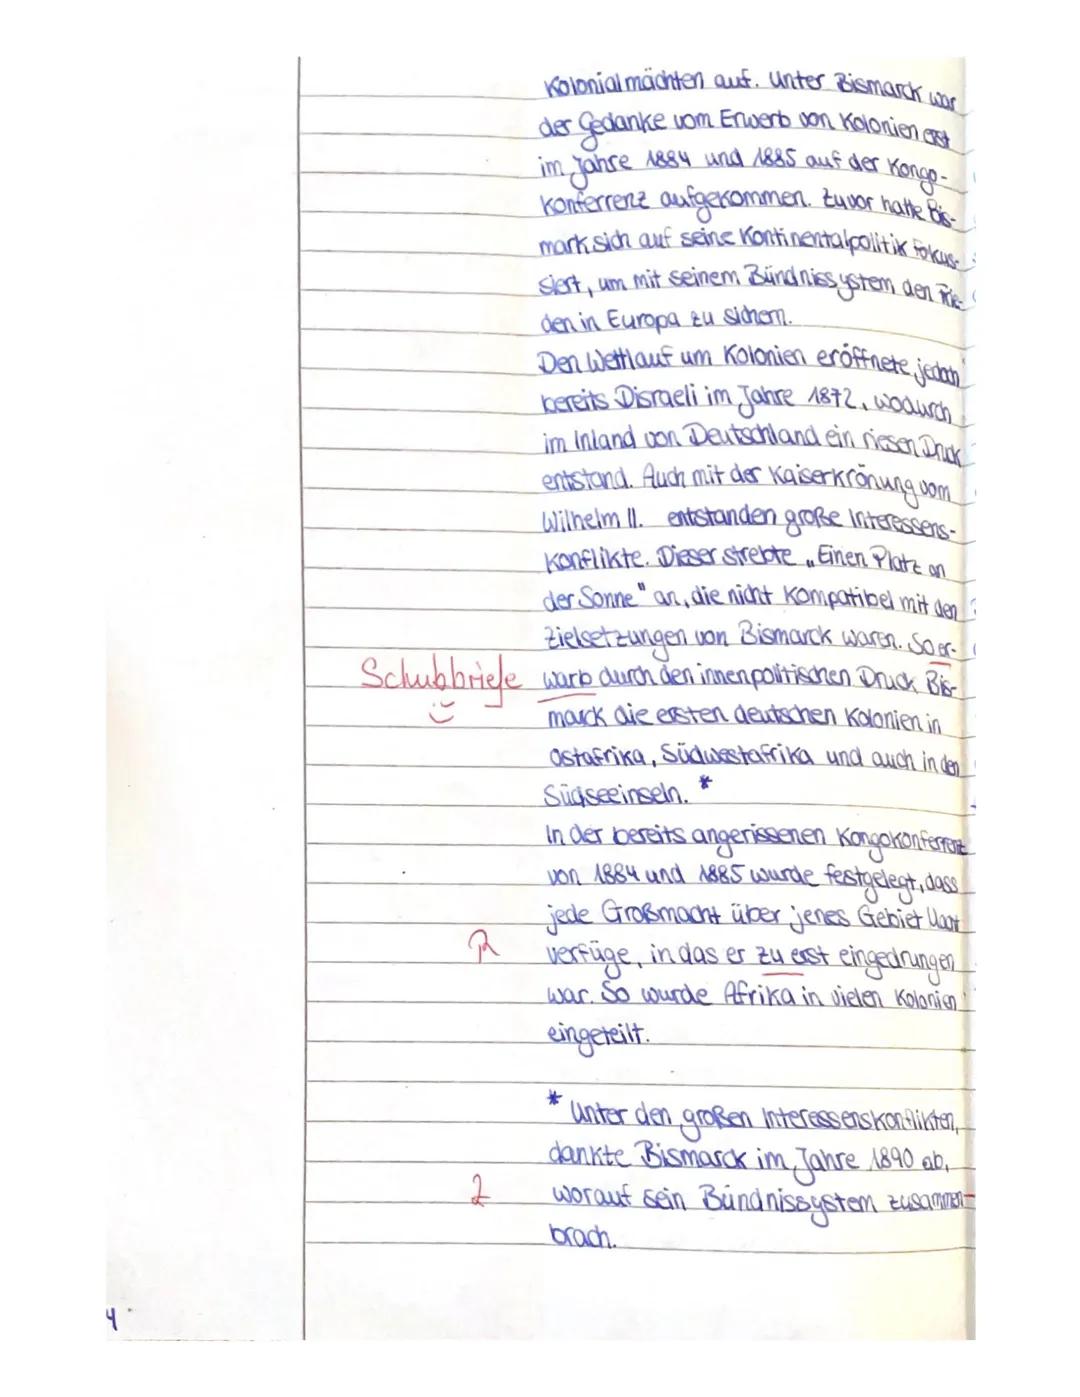 Kolonialmächten auf. Unter Bismarck war
der Gedanke vom Erwerb von Kolonien erst
im Jahre 1884 und 1885 auf der Kongo-
konferrenz aufgekommen. Zuvor hatte Bis-
mark sich auf seine Kontinentalpolitik fokus-
siert, um mit seinem Bündnissystem den Frie-
den in Europa zu sichern.
Den Wettlauf um Kolonien eröffnete jedoch
bereits Disraeli im Jahre 1872, wodurch
im Inland von Deutschland ein riesen Druck
entstand. Auch mit der Kaiserkrönung vom
Wilhelm II. entstanden große Interessens-
konflikte. Dieser strebte „Einen Platz an
der Sonne" an, die nicht kompatibel mit den
Zielsetzungen von Bismarck waren. So er-
Schubbriefe warb durch den innenpolitischen Druck Bis-
marck die ersten deutschen Kolonien in
Ostafrika, Südwestafrika und auch in den
Südseeinseln. *
In der bereits angerissenen Kongokonferrenz
von 1884 und 1885 wurde festgelegt, dass
jede Großmacht über jenes Gebiet Macht
R verfüge, in das er zu erst eingedrungen
war. So wurde Afrika in vielen Kolonien
eingeteilt.
* Unter den großen Interessenskonflikten,
dankte Bismarck im Jahre 1890 ab,
Z worauf sein Bündnissystem zusammen-
brach.
4